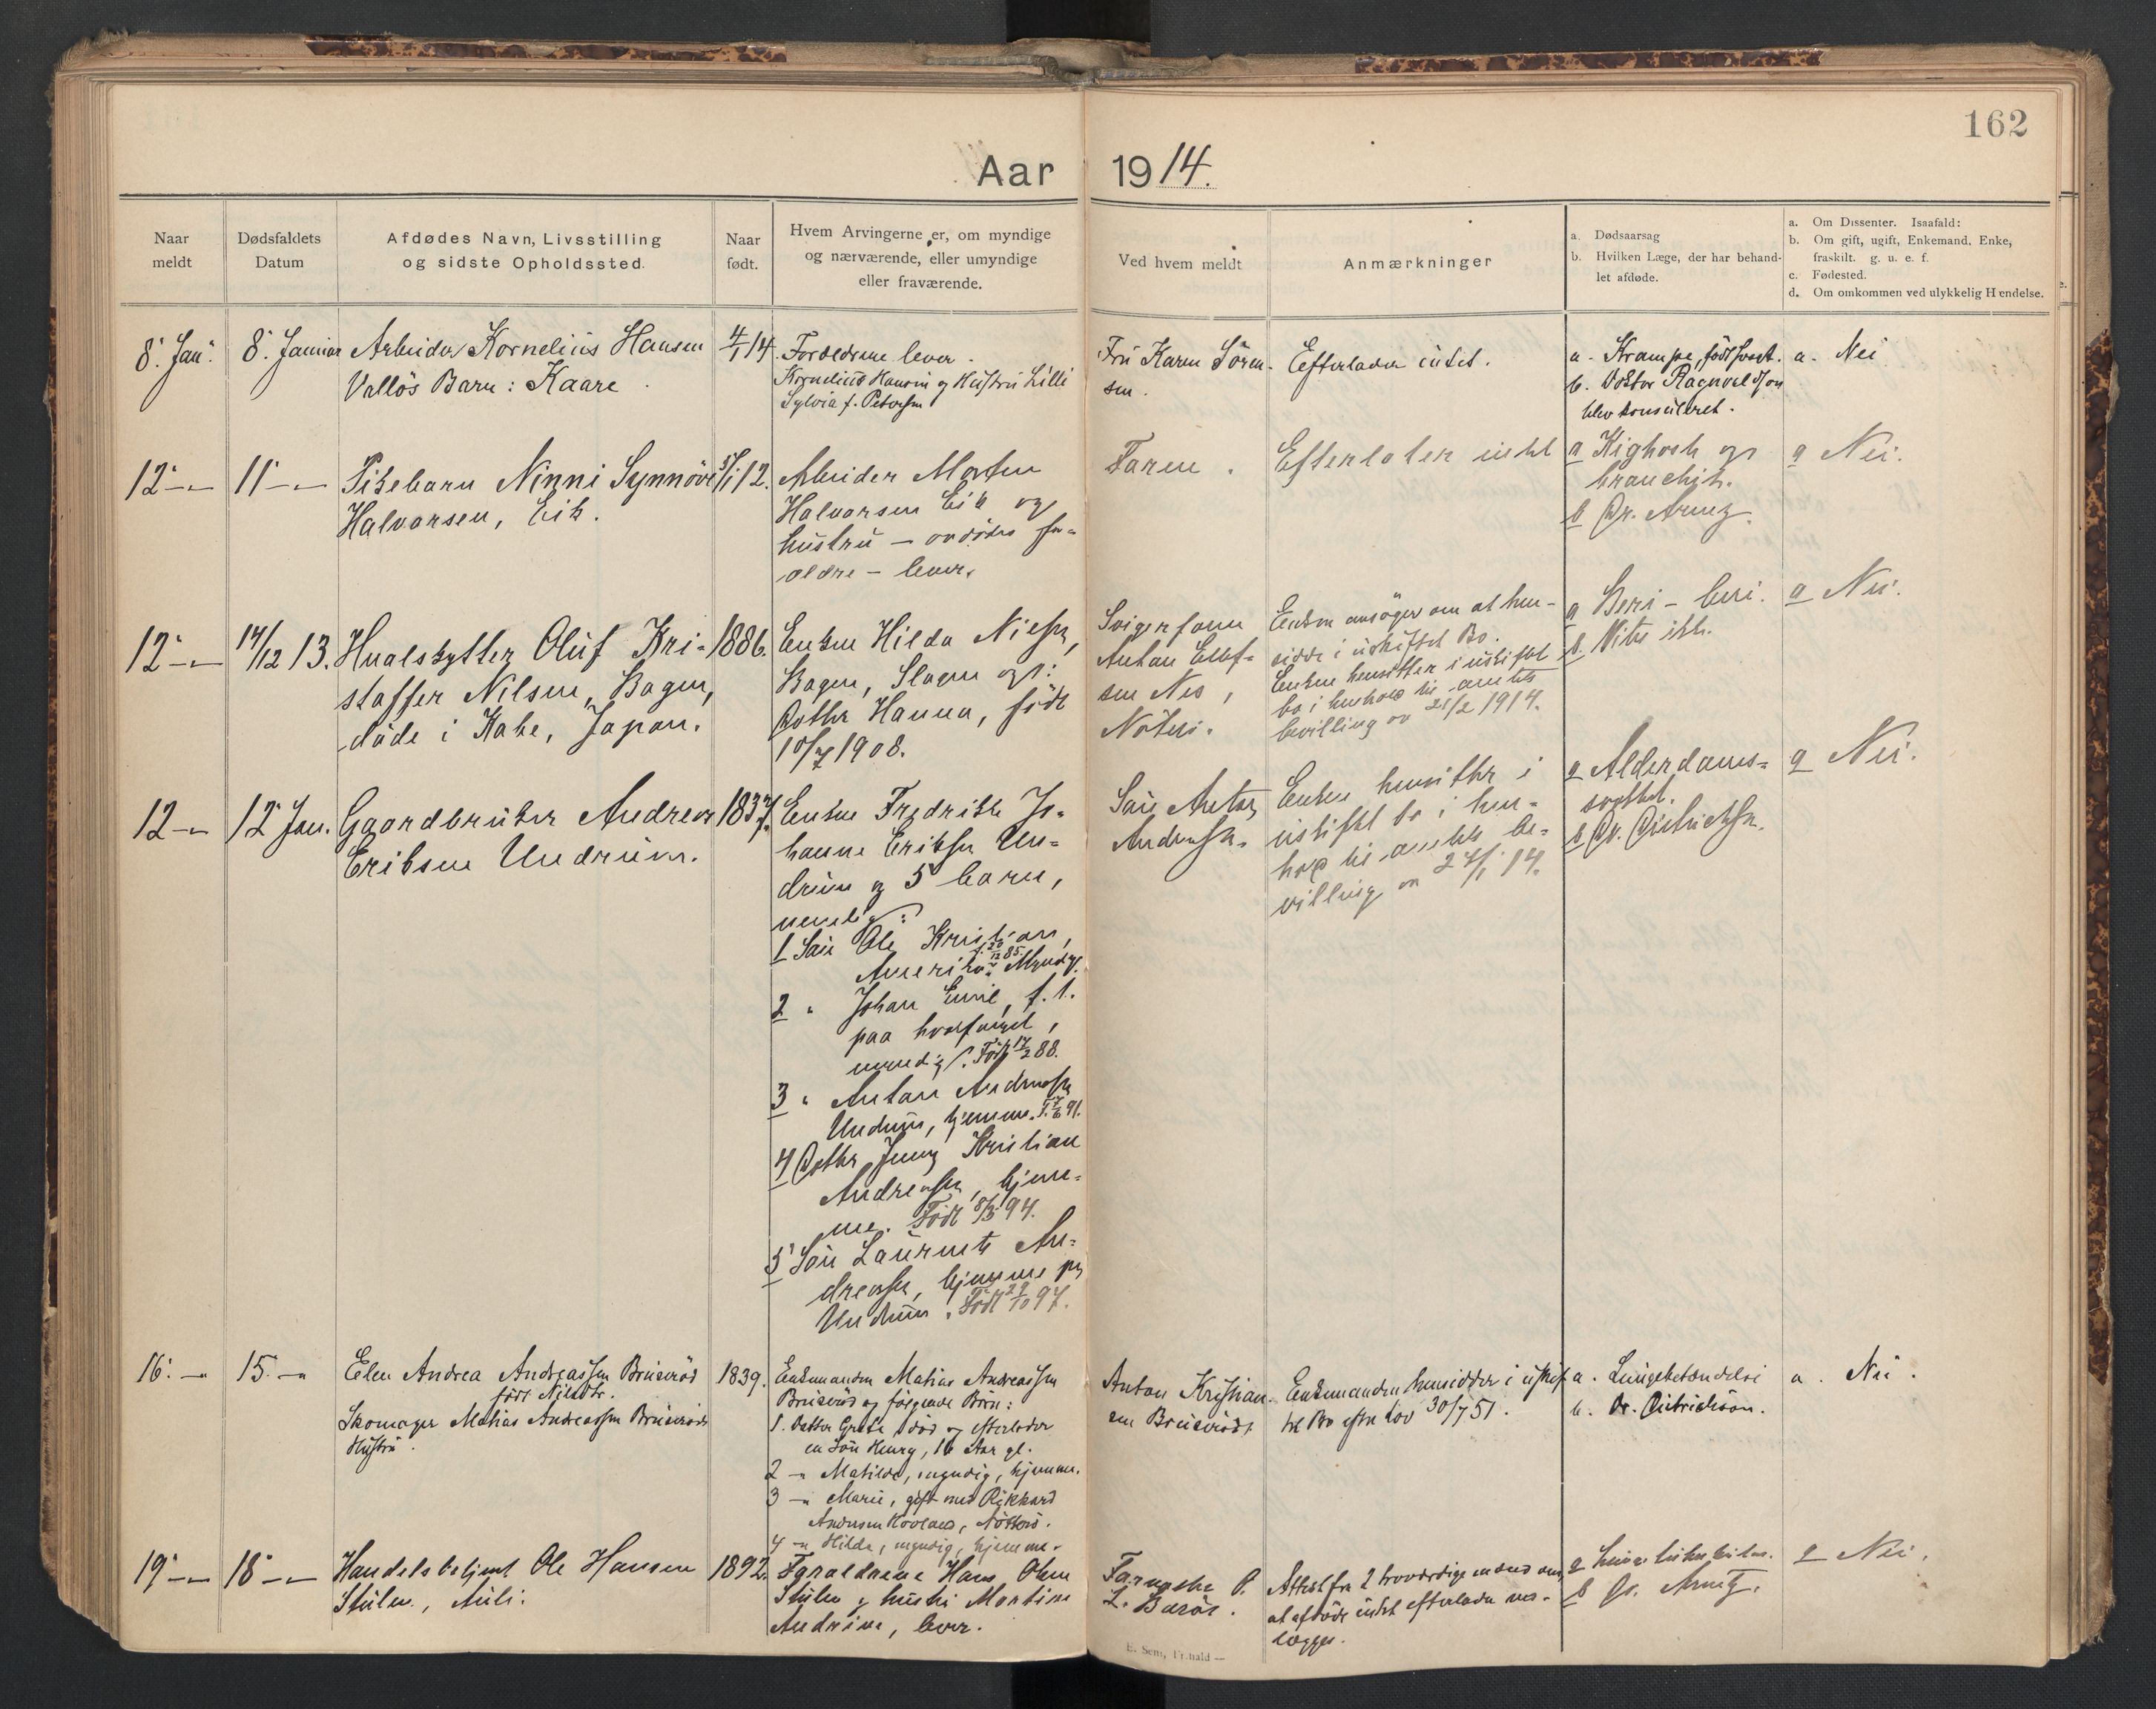 162
Aar 1914.
Naar meldt
Dødsfaldets Datum
Afdødes Navn, Livsstilling og sidste Opholdssted.
Naar født.
Hvem Arvingerne er, om myndige og nærværende, eller umyndige eller fraværende.
Ved hvem meldt
Anmærkninger
a. Dødsaarsag
b. Hvilken Læge, der har behandlet afdøde.
a. Om Dissenter. Isaafald:
b. Om gift, ugift, Enkemand, Enke, fraskilt. g. u. e. f.
c. Fødested.
d. Om omkommen ved ulykkelig Hændelse.
8. Jan.
8. Januar
Arbeider Kornelius Hansen
Valløs Barn: Kaare
4/1 14.
Forældrene lever.
Kornelius Hansen og Hustru Lilli
Sylvia f. Petersen
Fru Karen Sören-
sen.
Efterlader intet.
a. Krampe, født svagt.
b. Doktor Ragnvaldson
blev konsuleret.
a. Nei
12 -"-
11 -"-
Pikebarn Ninni Synnöve
Halvorsen, Eik.
12.
Arbeider Morten
Halvorsen Eik og
hustru - avdødes for-
ældre - lever.
Faren.
Efterlater intet
a Kighoste og
bronchit.
b Dr. Arentz.
a Nei.
12 -"-
14/12 13.
Hvalskytter Oluf Kri-
stoffer Nilsen, Bogen,
døde i Kobe, Japan.
1886.
Enken Hilda Nielsen,
Bogen, Slagen og:
Dotter Hanna, født
10/7 1908.
Svigerfaren
Anton Ellef-
sen Nes,
Nøterö.
Enken ansøger om at hen-
sidde i uskiftet Bo.
Enken hensitter i uskiftet
bo i henhold til amtets
bevilling av 21/2 1914.
a Beri-beri.
b Vites ikke.
a Nei.
12 -"-
12 Jan.
Gaardbruker Andreas
Eriksen Undrum.
1837.
Enken Fredrikke Jo-
hanne Eriksen Un-
drum og 5 barn,
nemlig:
1 Søn Ole Kristian, f. 20/12 85.
Amerika. Myndig.
2 " Johan Emil, f. t.
paa hvalfangst,
myndig. Født 17/2 88.
3 " Anton Andreassen
Undrum, hjemme. F. 7/6 91.
4 Dotter Jenny Kristiane
Andreassen, hjem-
me. Født 8/5 94.
5 Søn Laurents An-
dreassen, hjemme paa
Undrum. Født 29/10 97.
Søn Anton
Andreassen.
Enken hensitter i
uskiftet bo i hen-
hold til amtets be-
villing av 24/1 14.
a Alderdoms-
svækkelse.
b Dr. Dietrichsen.
a Nei.
16. -"-
15. -"-
Elen Andrea Andreassen Bruserød
født Nilsdtr.
Skomager Matias Andreassen Bruserøds
Hustru.
1839.
Enkemanden Matias Andreassen
Bruserød og følgende Børn:
1. Datter Grete, død og efterlader
en Søn Henry, 16 Aar gl.
2 -" Matilde, myndig, hjemme.
3 -" Marie, gift med Rikhard
Andersen Hovland, Nøtterø.
4 -" Hilda, myndig, hjemme.
Anton Kristian-
sen Bruserød
Enkemanden hensidder i uskif-
tet Bo efter Lov 30/7 51.
a. Lungebetændelse
b. Dr. Dietrichson.
a. Nei.
19 -"-
18 -"-
Handelsbetjent Ole Hansen
Stulen, Auli.
1892.
Forældrene Hans Olsen
Stulen og hustru Martine
Andrine, lever.
O.
L. Barøs.
Attest fra 2 troværdige mænd om,
at afdøde intet efterlader ved-
lægges.
a Lungetuberkulos.
b Dr. Arentz.
a Nei.
E. Sem, Fr.hald